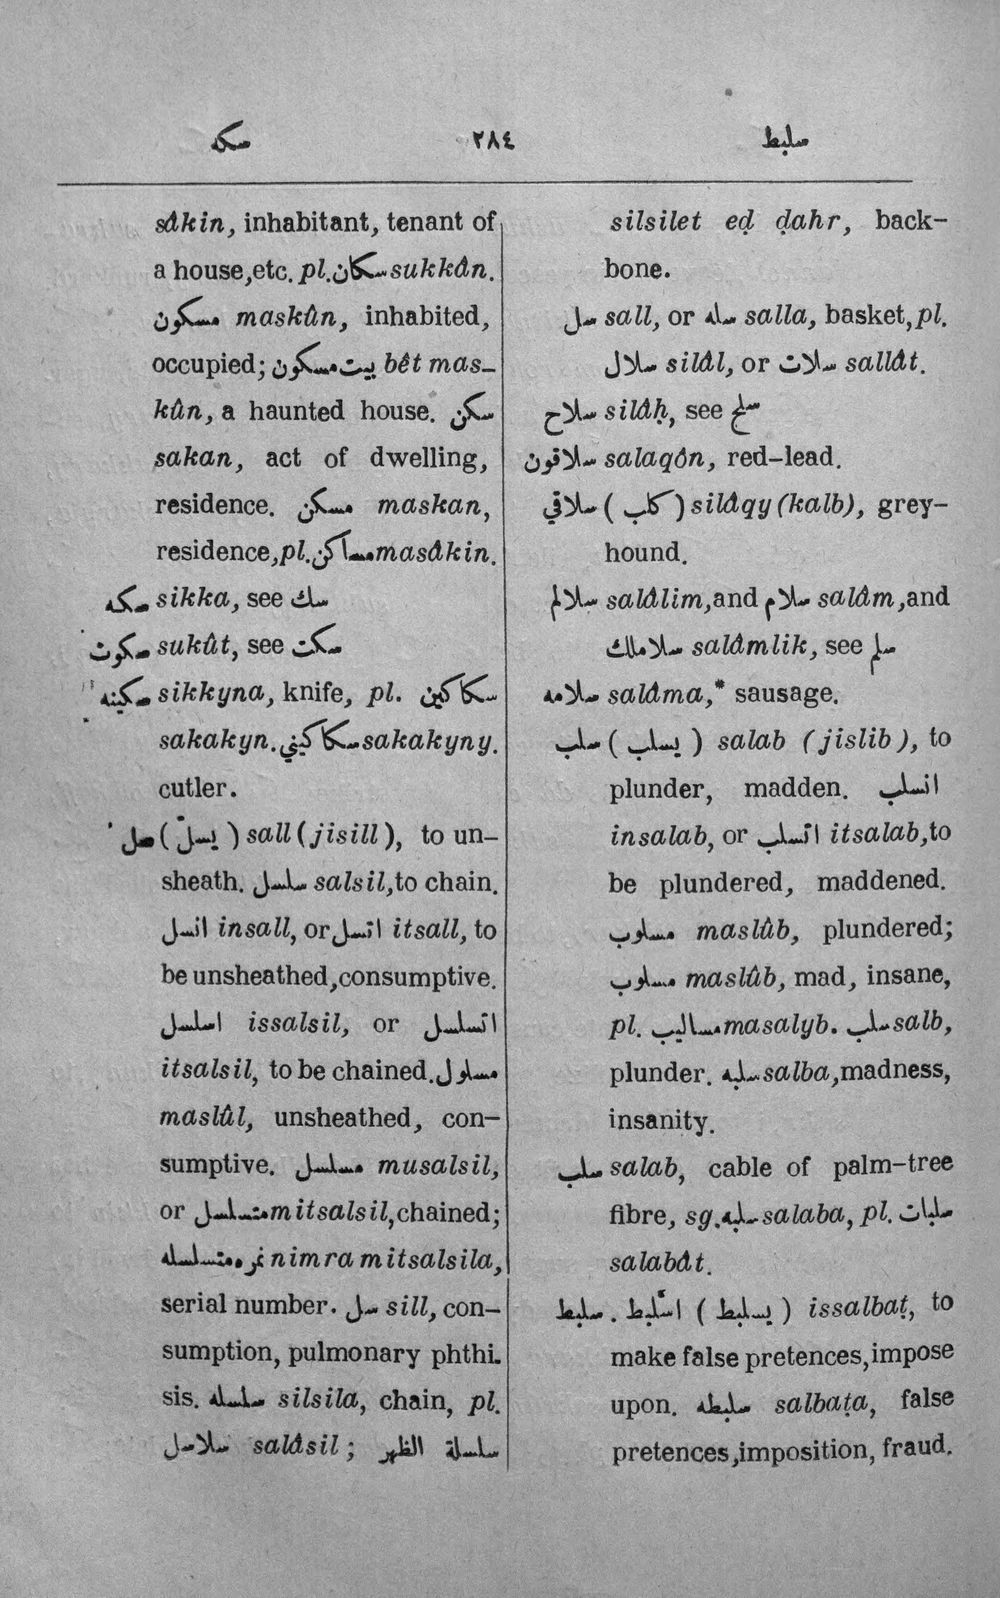 سكه ٢٨٤ سلبط
sâkin, inhabitant, tenant of
a house, etc. pl. سكان sukkân.
مسكون maskûn, inhabited,
occupied; بيت مسكون bêt mas-
kûn, a haunted house. سكن
sakan, act of dwelling,
residence. مسكن maskan,
residence, pl. مساكن masâkin.
سكه sikka, see سك
سكوت sukût, see سكت
سكينه sikkyna, knife, pl. سكاكين
sakakyn. سكاكيني sakakyny.
cutler.
سل ( يسلّ ) sall (jisill), to un-
sheath. سلسل salsil, to chain.
انسل insall, or اتسل itsall, to
be unsheathed, consumptive.
اسلسل issalsil, or اتسلسل
itsalsil, to be chained. مسلول
maslûl, unsheathed, con-
sumptive. مسلسل musalsil,
or متسلسل mitsalsil, chained;
نمره متسلسله nimra mitsalsila,
serial number. سل sill, con-
sumption, pulmonary phthi-
sis. سلسله silsila, chain, pl.
سلاسل salâsil ; سلسلة الظهر
silsilet eḍ ḍahr, back-
bone.
سل sall, or سله salla, basket, pl.
سلال silâl, or سلات sallât.
سلاح silâḥ, see سلح
سلاقون salaqôn, red-lead.
سلاقي ( كلب ) silâqy (kalb), grey-
hound.
سلالم salâlim, and سلام salâm, and
سلاملك salâmlik, see سلم
سلامه salâma,* sausage.
سلب ( يسلب ) salab (jislib), to
plunder, madden. انسلب
insalab, or اتسلب itsalab, to
be plundered, maddened.
مسلوب maslûb, plundered;
مسلوب maslûb, mad, insane,
pl. مساليب masalyb. سلب salb,
plunder. سلبه salba, madness,
insanity.
سلب salab, cable of palm-tree
fibre, sg. سلبه salaba, pl. سلبات
salabât.
سلبط . اسّلبط ( يسلبط ) issalbaṭ, to
make false pretences, impose
upon. سلبطه salbaṭa, false
pretences, imposition, fraud.